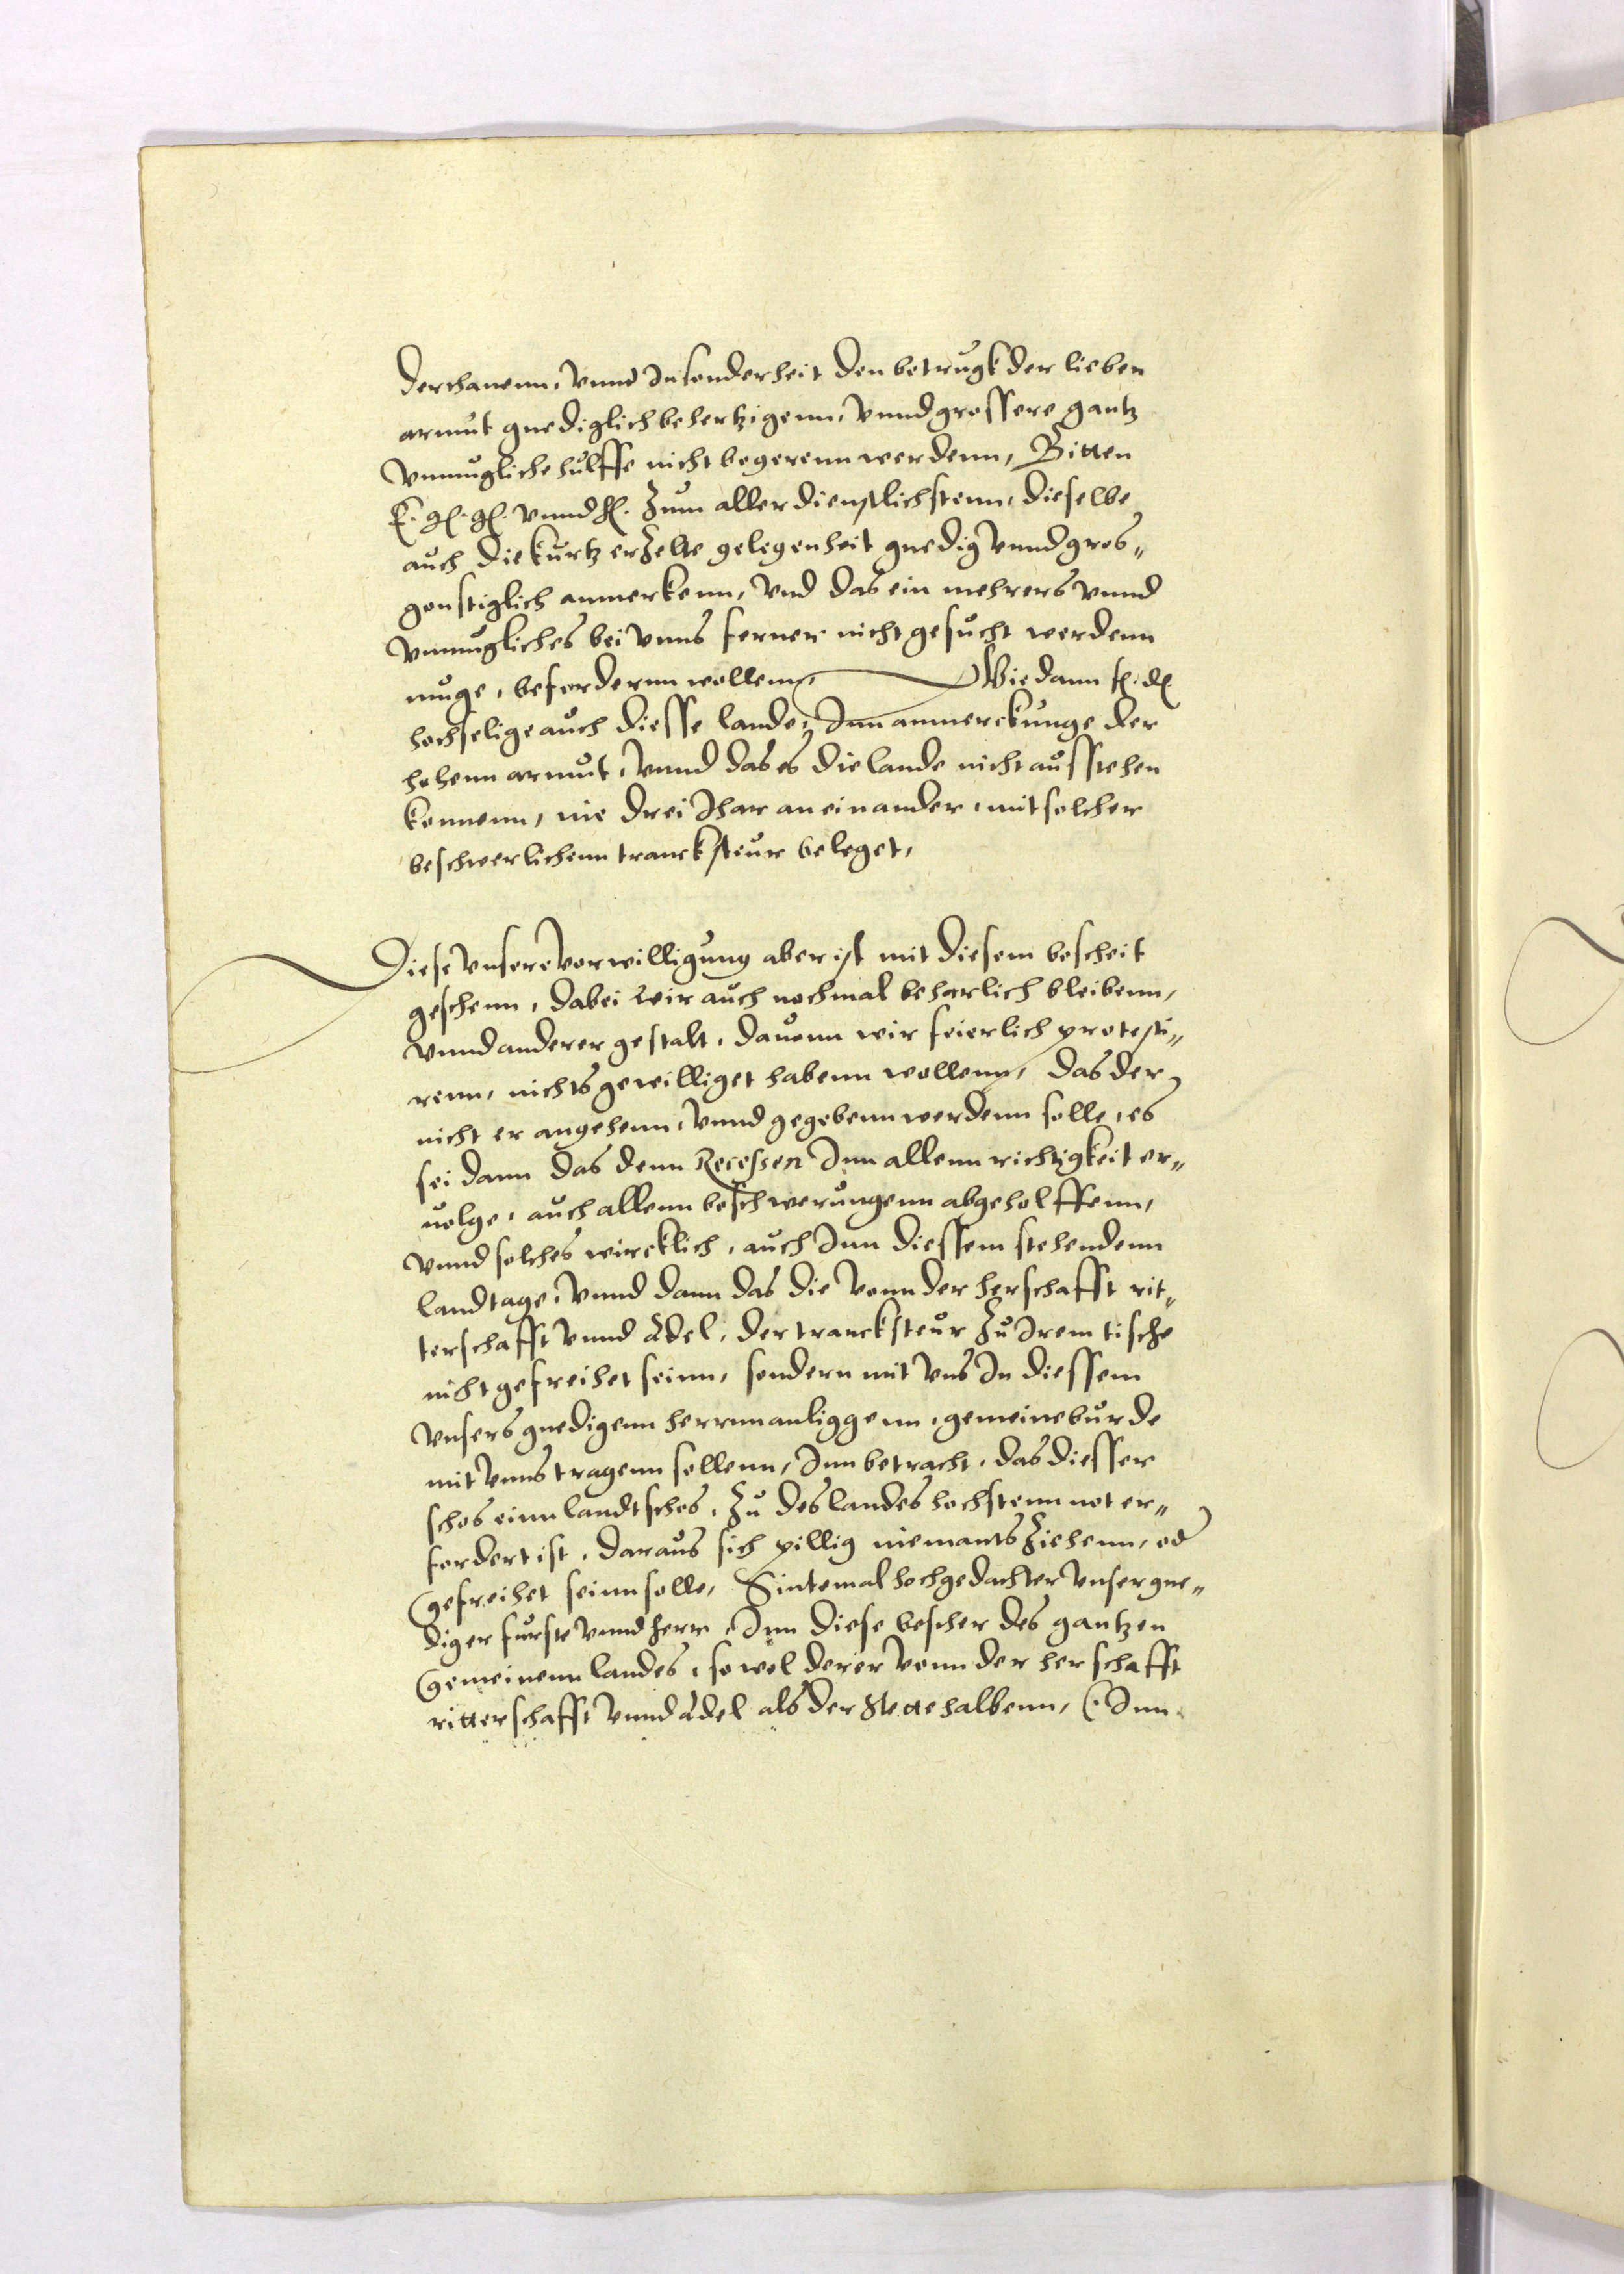 derchauenn, vnnd Insonderheit den betrugk der lieben
armut gnediglich behertzigenn, vnnd grossere gantz
vnmugliche hulffe nicht begerenn werdenn, Bitten
E. g. g. vnnd h. zum aller dienstlichstenn, dieselbe
auch die kurtz erzelte gelegenheit gnedig vnnd gros„
gonstiglich anmerkenn, vnd das ein mehrers vnnd
vnmugliches bei vnns ferner nicht gesucht werdenn
muge, befordernn wollenn, Wie dann f. d.
hochselige auch diesse lande, Inn anmerckunge der
hohenn armut, vnnd das es die lande nicht ausstehen
konnenn, nie drei Ihar an einander, mit solcher
beschwerlichenn trancksteur beleget,
Diese vnsere vorwilligung aber ist mit diesem bescheit
geschenn, dabei wir auch nochmal beharlich bleibenn,
vnnd anderer gestalt, dauonn wir feierlich protesti„
renn, nichts gewilliget habenn wollenn, das der
nicht er angehenn, vnnd gegebenn werdenn solle, es
sei dann das denn Recessen Inn allenn richtigkeit er„
uolge, auch allenn beschwerungenn abgeholffenn,
vnnd solches wircklich, auch Inn diessem stehendenn
landtage, vnnd dann das die vonn der herschafft rit„
terschafft vnnd Adel, der trancksteur zu Irem tische
nicht gefreihet seinn, sondern mit vns In diessem
vnsers gnedigenn herrnn anliggenn, gemeine burde
mit vnns tragenn sollenn, Inn betracht, das diesser
schos einn landtschos, zu des landes hochstenn not er„
fordert ist, daraus sich pillig niemants ziehenn, od
gefreihet seinn solle, Sintemal hochgedachter vnser gne„
diger furste vnnd herr, Inn diese bescher des gantzen
gemeinenn landes, so wol derer vonn der herschafft
ritterschafft vnnd Adel als der Stette halbenn, (Inn